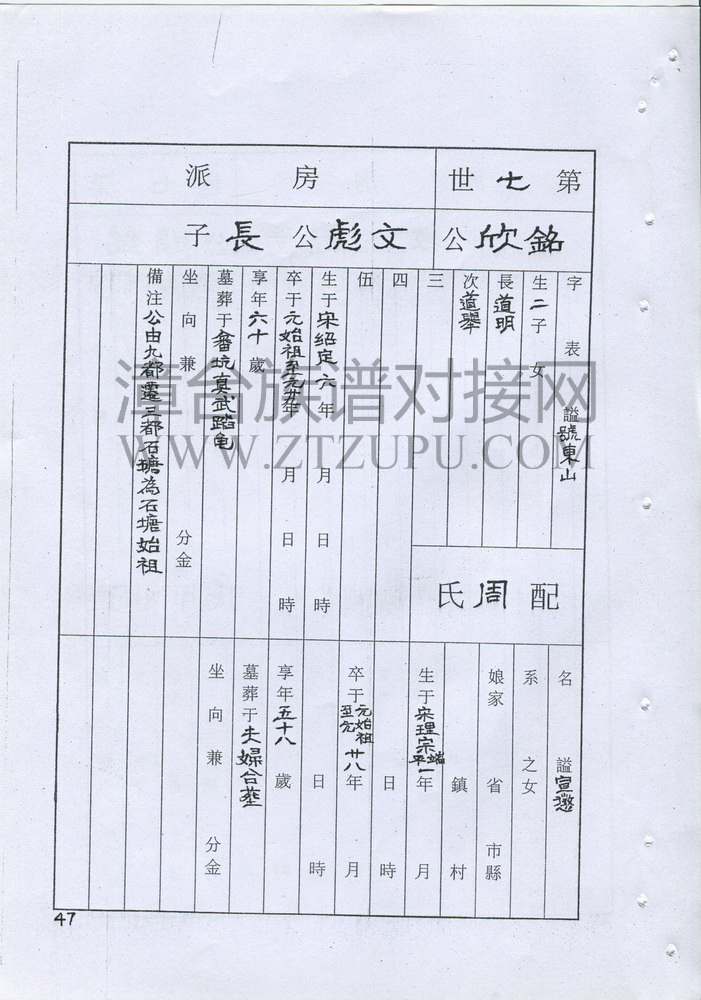 第七世
房派
銘欣公
文彪公長子
字表 諡號東山
生二子女
長道明
次道舉
三
四
伍
生于宋紹定六年 月 日 時
卒于元始祖至元廿九年 月 日 時
享年六十歲
墓葬于畬坑真武踏龟
坐向兼 分金
備注公由九都遷三都石塘為石塘始祖
配周氏
名 諡宣懿
系 之女
娘家 省 市縣
鎮 村
生于宋理宗端平一年 月
日 時
卒于元始祖至元廿八年 月
日 時
享年五十八歲
墓葬于夫婦合葬
坐向兼 分金
47
漳台族谱对接网
WWW.ZTZUPU.COM